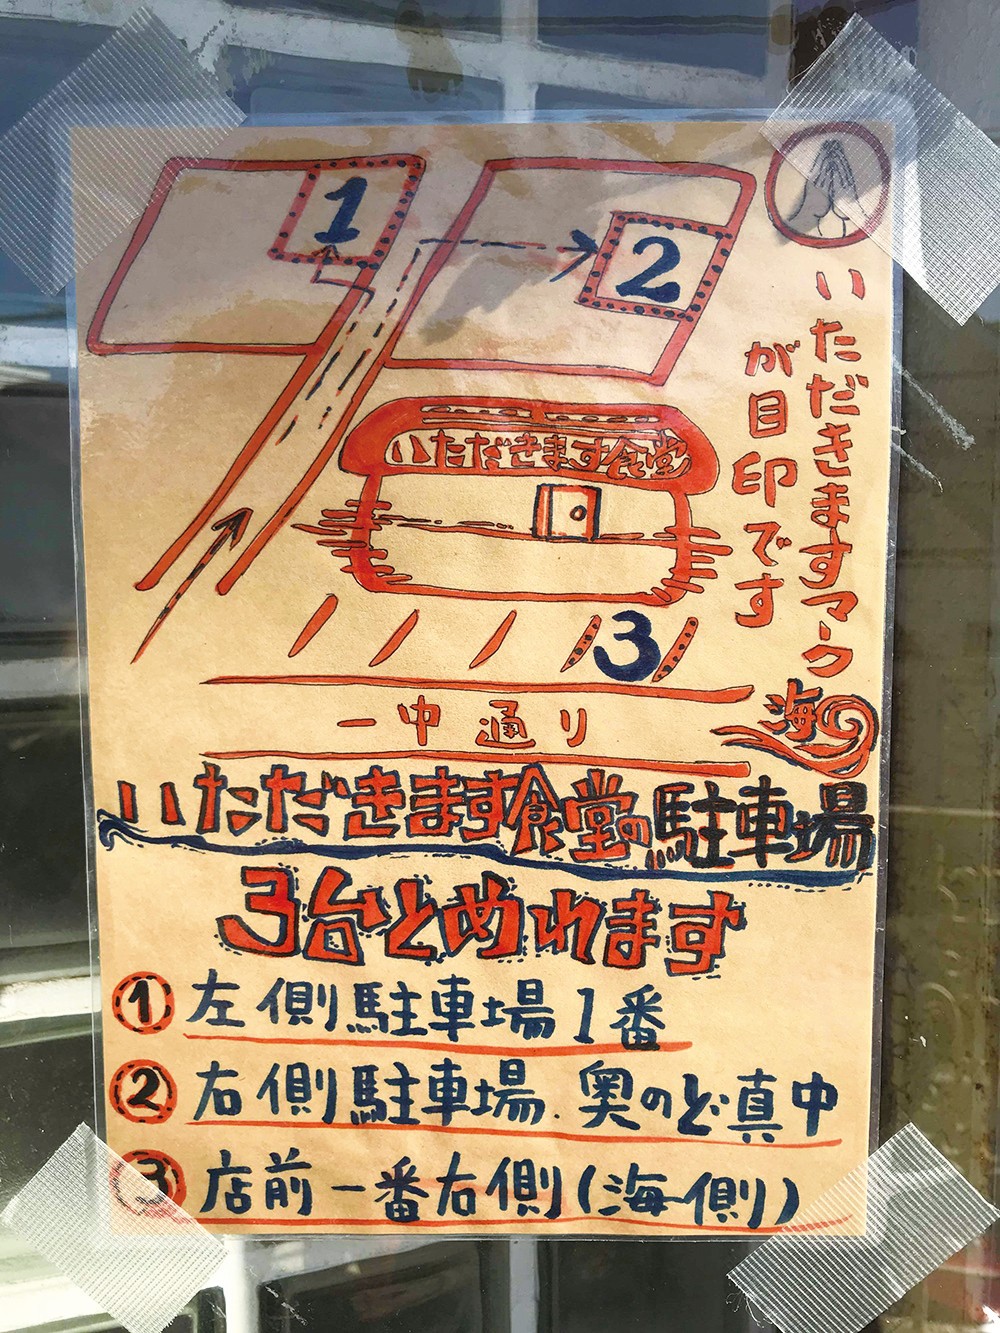 1
2
いただきますマーク
が目印です
いただきます食堂
3
一中通り
海
いただきます食堂の駐車場
3台とめれます
① 左側駐車場1番
② 右側駐車場.奥のど真中
③ 店前一番右側(海側)